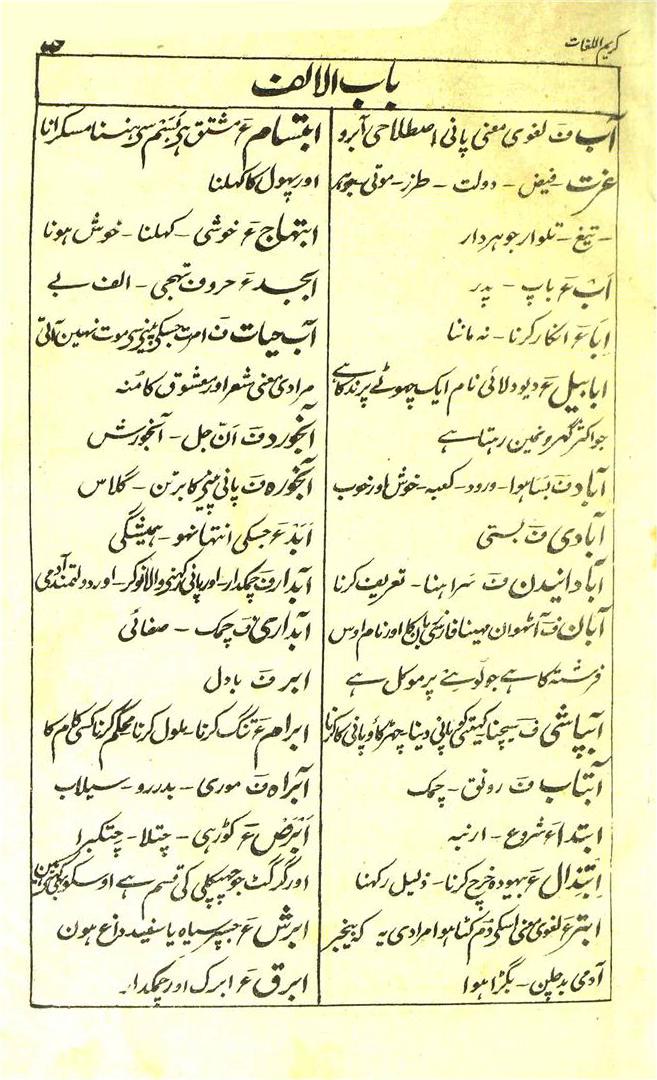 کریم اللغات
باب الالف
آب ف لغوی معنی پانی اصطلاحی آبرو
عزت - فیض - دولت - طرز - موتی - جوہر
- تیغ - تلوار جوہردار
اَب ء باپ - پدر
اِبا ء انکار کرنا - نہ ماننا
ابابیل ء ایک چھوٹے پرند کا ہے
جو اکثر گھرونمین رہتا ہے
آباد ف بسا ہوا - ورود - کعبہ - خوش اور خوب
آبادی ف بستی
آبادانیدن ف سراہنا - تعریف کرنا
آبان ف آٹھوان مہینا فارسی کا اور نام اوس
فرشتہ کا ہے جو لوہے پر موکل ہے
آبپاشی ف سیچنا کہیتی کو پانی دینا - چھڑکاو پانی کا کرنا
آبتاب ف رونق - چمک
ابتداء ء شروع -
ابتذال ء بیہودہ خرچ کرنا - ذلیل رکھنا
ابتر ء لغوی معنی اسکی دم کٹا ہوا مرادی یہ کہ
آدمی بدچلن - بگڑا ہوا
ابتسام ء مشتق ہی تبسم سی ہنسنا مسکرانا
اور پہول کا کہلنا
ابتہاج ء خوشی - کہلنا - خوش ہونا
ابجد ء حروف تہجی - الف بے
آبحیات ف امرت جسکی پینی سی موت نہین آتی
مرادی معنی شعر اور معشوق کا منہ
آبخورد ف ان جل - آبخورش
آبخورہ ف پانی پینی کا برتن - گلاس
اَبَد ء جسکی انتہا نہو - ہمیشگی
آبدار ف چمکدار - اور پانی رکہنی والا نوکر - اور دولتمند آدمی
آبداری ف چمک - صفائی
ابر ف بادل
ابرام ء تنگ کرنا - ملول کرنا محکم کرنا کسی کلام کا
آبراہ ف موری - بدررو - سیلاب
اَبْرَص ء کوڑہی - چتلا - چتکبرا
اور گرگٹ جو چھپکلی کی قسم ہے اوسکو بھی کہتے ہین
ابرش ء جسپر سیاہ یا سفید داغ ہون
ابرق ء ابرک اور چمکدار -